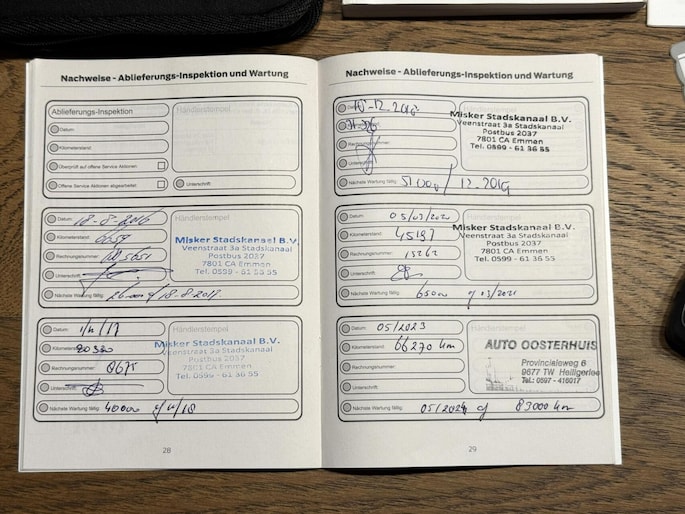 Nachweise - Ablieferungs-Inspektion und Wartung
Ablieferungs-Inspektion
Händlerstempel
Datum:
Kilometerstand:
Überprüft auf offene Service Aktionen:
Offene Service Aktionen abgearbeitet:
Unterschrift:
Datum: 18-8-2016
Händlerstempel
Kilometerstand:
Rechnungsnummer:
Unterschrift:
Nächste Wartung fällig:
Misker Stadskanaal B.V.
Veenstraat 3a Stadskanaal
Postbus 2037
7801 CA Emmen
Tel. 0599 - 61 36 55
Datum: 1/11/17
Händlerstempel
Kilometerstand:
Rechnungsnummer:
Unterschrift:
Nächste Wartung fällig: 40000
Misker Stadskanaal B.V.
Veenstraat 3a Stadskanaal
Postbus 2037
7801 CA Emmen
Tel. 0599 - 61 36 55
28
Nachweise - Ablieferungs-Inspektion und Wartung
Rechnungsnummer:
Nächste Wartung fällig: / 12-2019
Misker Stadskanaal B.V.
Veenstraat 3a Stadskanaal
Postbus 2037
7801 CA Emmen
Tel. 0599 - 61 36 55
Datum: 05/03/2020
Händlerstempel
Kilometerstand: 45197
Rechnungsnummer:
Unterschrift:
Nächste Wartung fällig: 65000 of 03/2021
Misker Stadskanaal B.V.
Veenstraat 3a Stadskanaal
Postbus 2037
7801 CA Emmen
Tel. 0599 - 61 36 55
Datum: 05/2023
Händlerstempel
Kilometerstand: 66270 km
Rechnungsnummer:
Unterschrift:
Nächste Wartung fällig: 05/2024 of 83000 km
AUTO OOSTERHUIS
Provincialeweg 6
9677 TW Heiligerlee
Tel.: 0597 - 416017
29